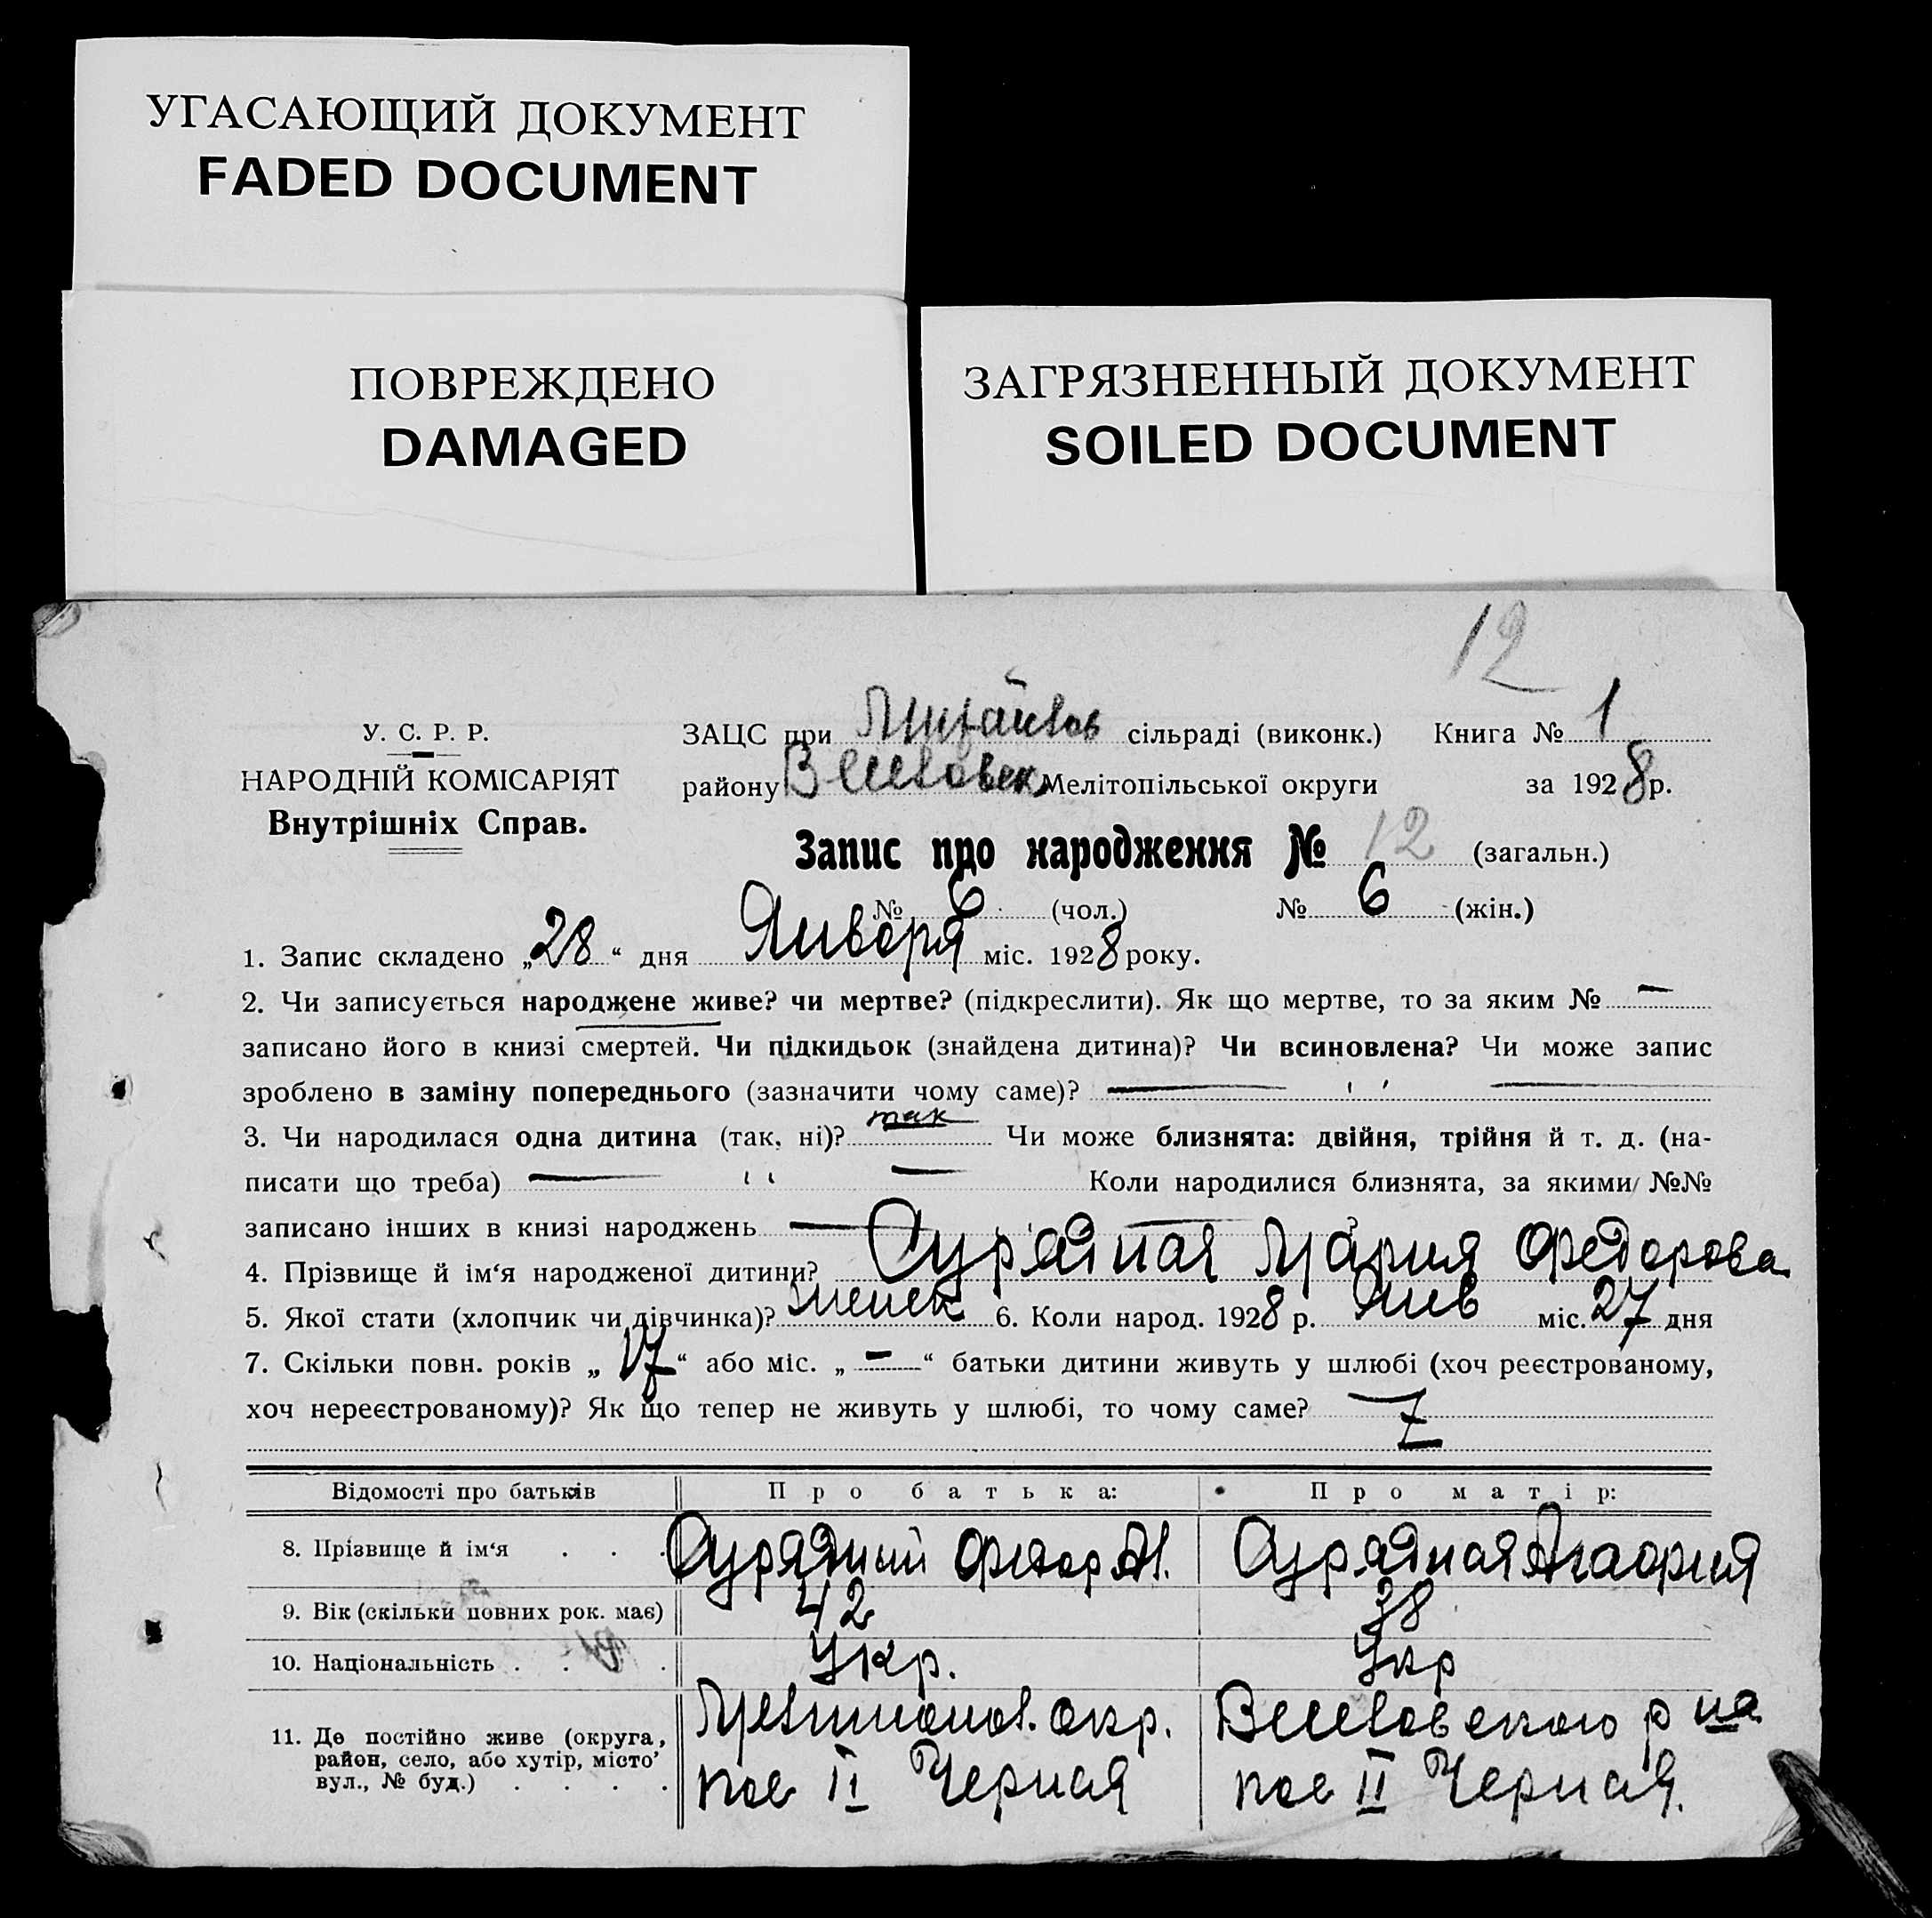 УГАСАЮЩИЙ ДОКУМЕНТ
FADED DOCUMENT
ПОВРЕЖДЕНО
DAMAGED
ЗАГРЯЗНЕННЫЙ ДОКУМЕНТ
SOILED DOCUMENT
12
У. С. Р. Р.
НАРОДНІЙ КОМІСАРІЯТ
Внутрішніх Справ.
ЗАЦС при сільраді (виконк.) Книга № 1
району Мелітопільської округи за 1928 р.
Запис про народження № 12 (загальн.)
№ 6 (чол.) № 6 (жін.)
1. Запис складено „28“ дня Января міс. 1928 року.
2. Чи записується народжене живе? чи мертве? (підкреслити). Як що мертве, то за яким № —
записано його в книзі смертей. Чи підкидьок (знайдена дитина)? Чи всиновлена? Чи може запис
зроблено в заміну попереднього (зазначити чому саме)? — ″ —
3. Чи народилася одна дитина (так, ні)? так Чи може близнята: двійня, трійня й т. д. (на-
писати що треба) — ″ — Коли народилися близнята, за якими №№
записано інших в книзі народжень —
4. Прізвище й ім‘я народженої дитини? Сурядная Мария Федорова
5. Якої стати (хлопчик чи дівчинка)? женск 6. Коли народ. 1928 р. Янв міс. 27 дня
7. Скільки повн. років „17“ або міс. „—“ батьки дитини живуть у шлюбі (хоч реєстрованому,
хоч нереєстрованому)? Як що тепер не живуть у шлюбі, то чому саме?
Відомості про батьків Про батька: Про матір:
8. Прізвище й ім‘я . . . Сурядный Федор Сурядная
9. Вік (скільки повних рок. має) 42 38
10. Національність . . . Укр. Укр
11. Де постійно живе (округа, окр. р на
район, село, або хутір, місто’
вул., № буд.) . . . . пос II Черная пос II Черная.